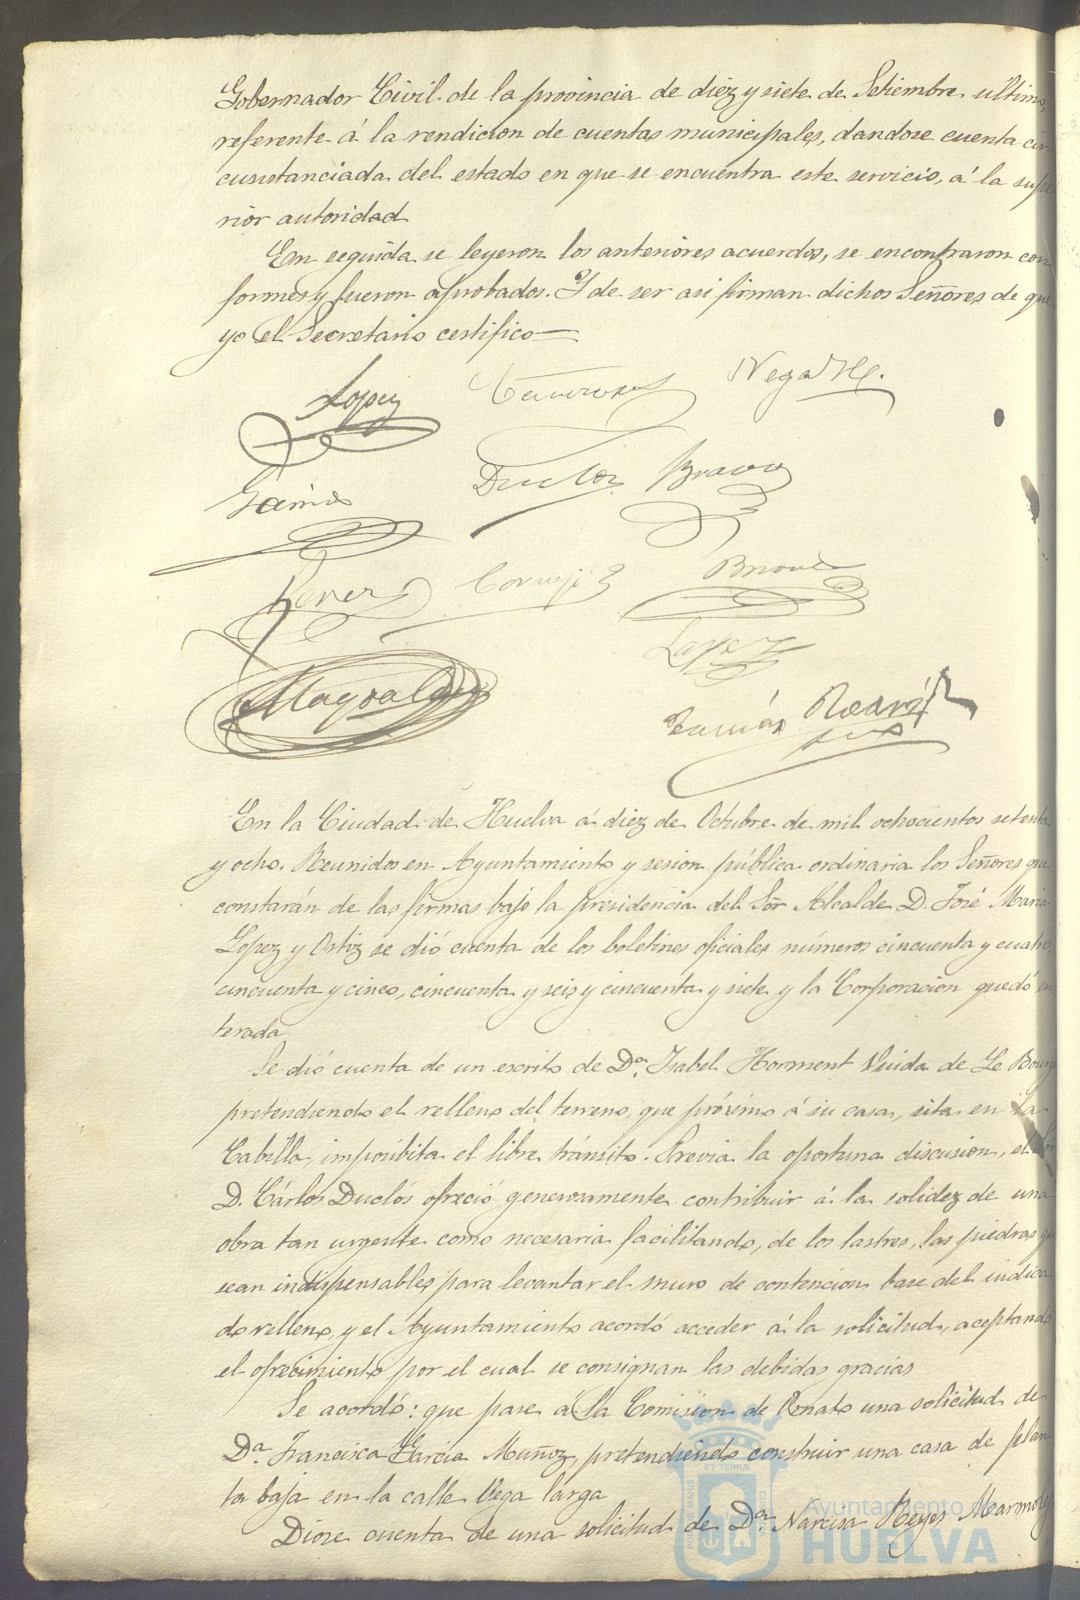 Gobernador Civil de la provincia de diez y siete de Setiembre último,
referente á la rendicion de cuentas municipales, dandose cuenta cir
cunstanciada del estado en que se encuentra este servicio, á la supe
rior autoridad
En seguida se leyeron los anteriores acuerdos, se encontraron con
formes y fueron aprobados. Y de ser asi firman dichos Señores de que
yo el Secretario certifico
Lopez Vega
Garrido Duclos Bravo
Perez Cornejo
Lopez
Magdalena
En la Ciudad de Huelva á diez de Octubre de mil ochocientos setenta
y ocho. Reunidos en Ayuntamiento y sesion pública ordinaria los Señores que
constarán de las firmas bajo la presidencia del Sor Alcalde D. José Maria
Lopez y Ortiz se dió cuenta de los boletines oficiales números cincuenta y cuatro,
cincuenta y cinco, cincuenta y seis y cincuenta y siete y la Corporacion quedó en
terada
Se dió cuenta de un escrito de Da. Isabel Horment Viuda de Le Bourg
pretendiendo el relleno del terreno, que próximo á su casa, sita en la
Calzilla, imposibita el libre tránsito. Previa la oportuna discusion, el Sor
D. Cárlos Duclós ofreció generosamente contribuir á la solidez de una
obra tan urgente como necesaria facilitando, de los lastres, las piedras q
sean indispensables para levantar el muro de contencion base del indica
do relleno, y el Ayuntamiento acordó acceder á la solicitud, aceptando
el ofrecimiento por el cual se consignan las debidas gracias
Se acordó: que pase á la Comision de Ornato una solicitud de
Da. Francisca Garcia Muñoz, pretendiendo construir una casa de plan
ta baja en la calle Vega larga
Diose cuenta de una solicitud de Da. Narcisa Reyes Marmolej
Ayuntamiento
HUELVA